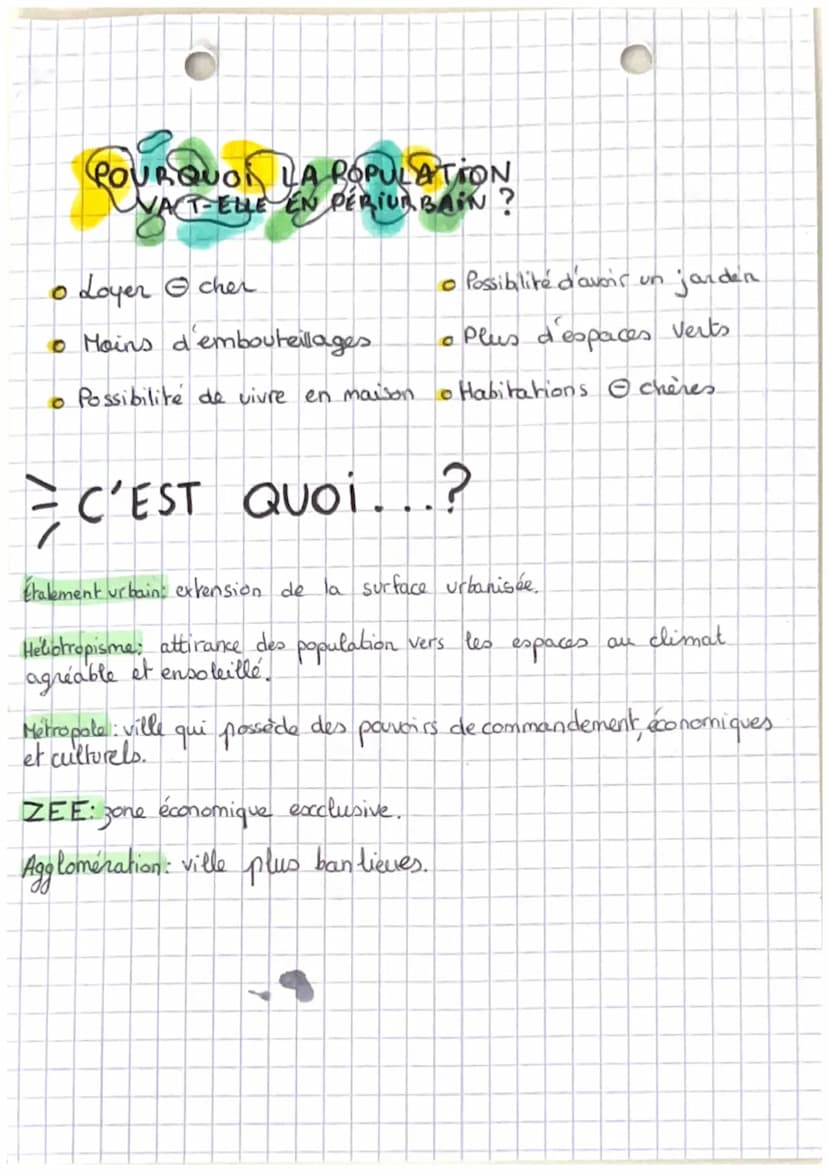 POURQUOI LA POPULATION
VA-T-ELLE EN PÉRIURBAIN ?
Loyer ⊖ cher
Moins d'embouteillages
Possibilité de vivre en maison
Possiblité d'avoir un jardin
Plus d'espaces verts
Habitations ⊖ chères
C'EST QUOI...?
Étalement urbain: extension de la surface urbanisée.
Héliotropisme: attirance des population vers les espaces au climat
agréable et ensoleillé.
Métropole: ville qui possède des pouvoirs de commandement, économiques
et culturels.
ZEE: zone économique exclusive.
Agglomération: ville plus banlieues.